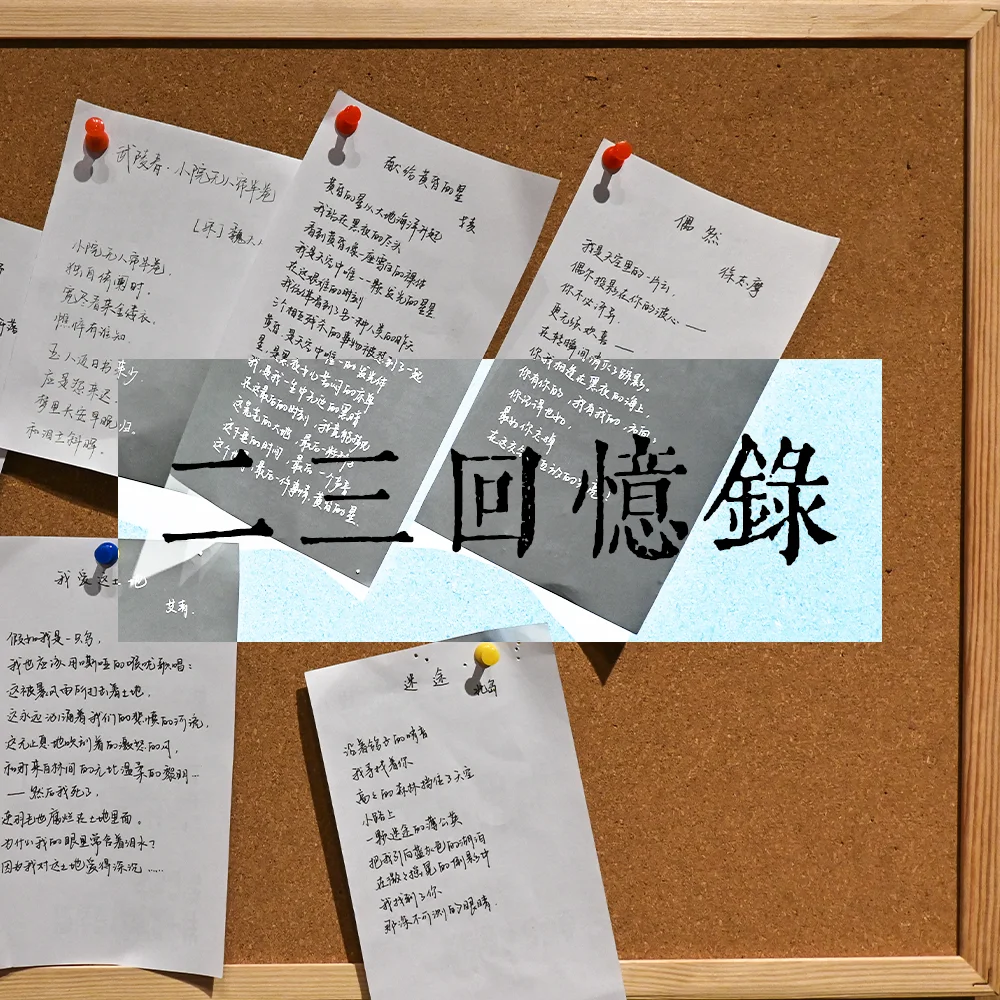 武陵春·小院无人帘半卷
[宋]魏夫人
小院无人帘半卷，
独自倚阑时。
宽尽春来金缕衣。
憔悴有谁知。
玉人近日书来少，
应是怨来迟。
梦里长安早晚归。
和泪立斜晖。
献给黄昏的星
黄昏的星从大地海洋升起
我站在黑夜的尽头
看到黄昏像一座雪白的裸体
我是天空中唯一一颗发光的星星
在这艰难的时刻
我仿佛看到了另一种人类的昨天
三个相互残杀的事物被推到了一起
黄昏，是天空中唯一的发光体
星，是黑夜的女儿苦闷的床单
我，是我一生中无边的黑暗
在这最后的时刻，我竟能梦见
这荒芜的大地，最后一粒种子
这下垂的时间，最后一个声音
这个世界，最后一件事情，黄昏的星
偶然
徐志摩
我是天空里的一片云，
偶尔投影在你的波心——
你不必讶异，
更无须欢喜——
在转瞬间消灭了踪影。
你我相逢在黑夜的海上，
你有你的，我有我的，方向；
你记得也好，
最好你忘掉
在这交会时互放的光亮！
二三回憶錄
我爱这土地
艾青.
假如我是一只鸟，
我也应该用嘶哑的喉咙歌唱：
这被暴风雨所打击着土地，
这永远汹涌着我们的悲愤的河流，
这无止息地吹刮着的激怒的风，
和那来自林间的无比温柔的黎明…
——然后我死了，
连羽毛也腐烂在土地里面。
为什么我的眼里常含着泪水？
因为我对这土地爱得深沉……
迷途
北岛
沿着鸽子的哨音
我寻找着你
高高的森林挡住了天空
小路上
一颗迷途的蒲公英
把我引向蓝灰色的湖泊
在微微摇晃的倒影中
我找到了你
那深不可测的眼睛.